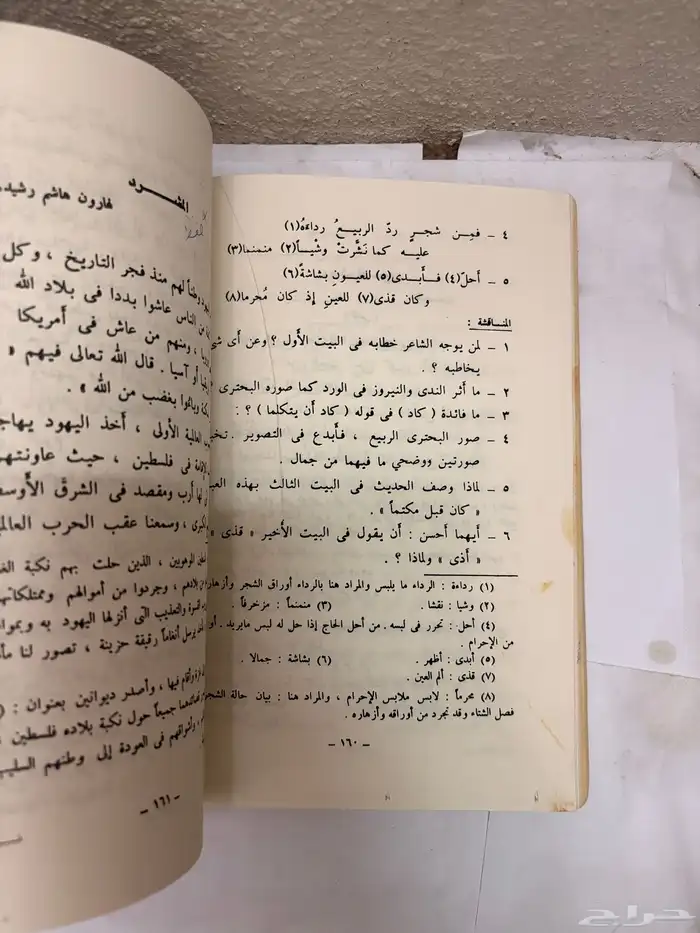 ٤ – فمِن شجرٍ ردّ الربيعُ رداءَهُ(١)
عليه كما نَشَّرتْ وشْياً(٢) منمنما(٣)
٥ – أحلّ(٤) فأَبدى(٥) للعيونِ بشاشةً(٦)
وكان قذى(٧) للعينِ إذ كان مُحرما(٨)
المناقشة :
١ – لمن يوجه الشاعر خطابه فى البيت الأَول ؟ وعن أَى
يخاطبه ؟ .
٢ – ما أَثر الندى والنيروز فى الورد كما صوره البحترى
٣ – ما فائدة ( كاد ) فى قوله ( كاد أَن يتكلما ) ؟ :
٤ – صور البحترى الربيع ، فأَبدع فى التصوير .
صورتين ووضحي ما فيهما من جمال .
٥ – لماذا وصف الحديث فى البيت الثالث بهذه
« كان قبل مكتماً » .
٦ – أَيهما أحسن : أَن يقول فى البيت الأَخير « قذى »
« أَذى » ولماذا ؟ .
(١) رداءة : الرداء ما يلبس والمراد هنا بالرداء أوراق الشجر وأزهاره
(٢) وشيا : نقشا . (٣) منمنماً : مزخرفاً .
(٤) أحل : تحرر فى لبسه . من أحل الحاج إذا حل له لبس مايريد .
من الإحرام .
(٥) أبدى : أظهر . (٦) بشاشة : جمالا .
(٧) قذى : ألم العين .
(٨) محرماً : لابس ملابس الإحرام ، والمراد هنا : بيان حالة
فصل الشتاء وقد تجرد من أوراقه وأزهاره .
– ١٦٠ –
المشــرد
هارون هاشم رشيد
وطناً لهم منذ فجر التاريخ ، وكل
من الناس عاشوا بددا فى بلاد الله
، ومنهم من عاش فى أَمريكا
أو آسيا . قال الله تعالى فيهم «
وباءوا بغضب من الله » .
العالمية الأولى ، أَخذ اليهود
فى فلسطين ، حيث
لها أرب ومقصد فى الشرق
، وسمعنا عقب الحرب
، الذين حلت بهم نكبة
، وجردوا من أموالهم
والتعذيب التى أنزلها اليهود به
أنغاماً رقيقة حزينة ، تصور لنا
وأقام فيها ، وأصدر ديوانين بعنوان : (
جميعاً حول نكبة بلاده فلسطين ،
، وأشواقهم فى العودة إلى وطنهم
– ١٦١ –
حراج